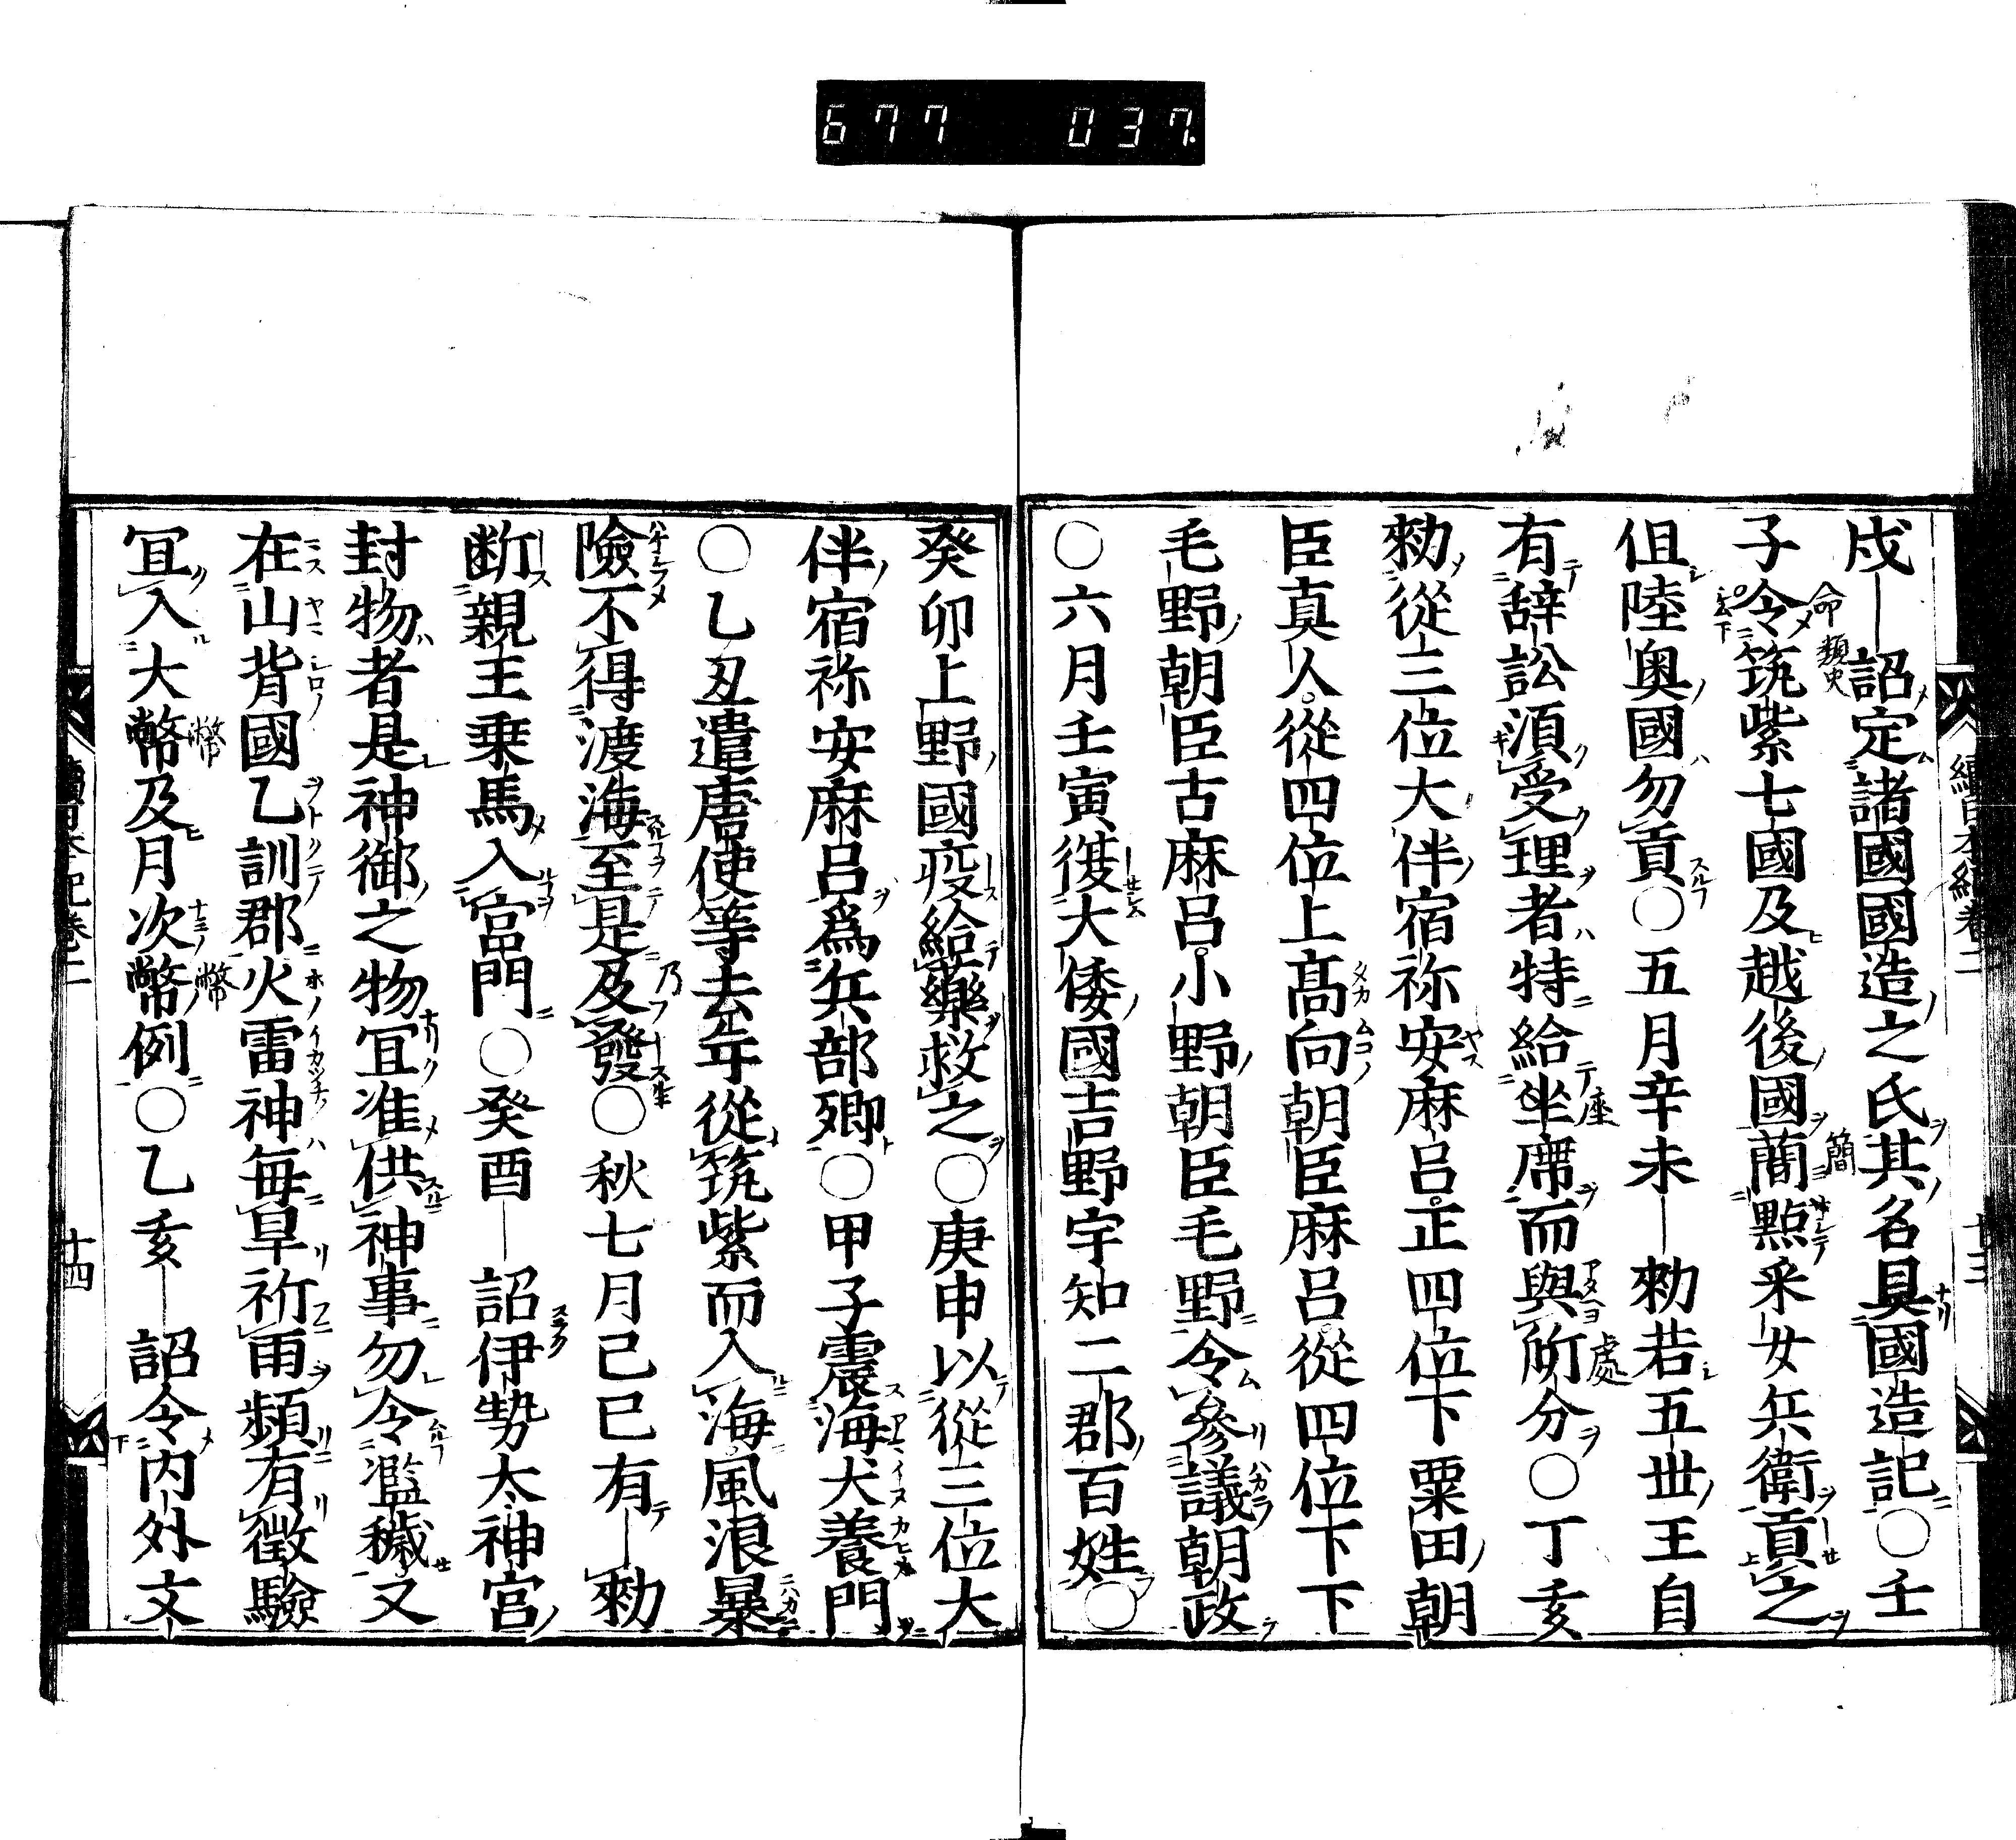 677 037.
戍―詔定諸國國造之氏其名具國造記○壬
子令筑紫七國及越後國蕳點采女兵衛貢之
但陸奥國勿貢○五月辛未―勅若五世王自
有辞訟湏受理者特給坐席而與所分○丁亥
勅從三位大伴宿祢安麻呂正四位下粟田朝
臣真人從四位上髙向朝臣麻呂從四位下下
毛野朝臣古麻呂小野朝臣毛野令參議朝政
○六月壬寅復大倭國吉野宇知二郡百姓○
癸卯上野國疫給藥救之○庚申以從三位大
伴宿祢安麻呂為兵部卿○甲子震海犬養門
○乙丑遣唐使等去年從筑紫而入海風浪暴
險不得渡海至是及發○秋七月己巳有―勅
断親王乗馬入宮門○癸酉―詔伊勢太神宮
封物者是神御之物冝准供神事勿令濫穢又
在山背國乙訓郡火雷神毎旱祈雨頻有徴驗
冝入大幣及月次幣例○乙亥―詔令内外文